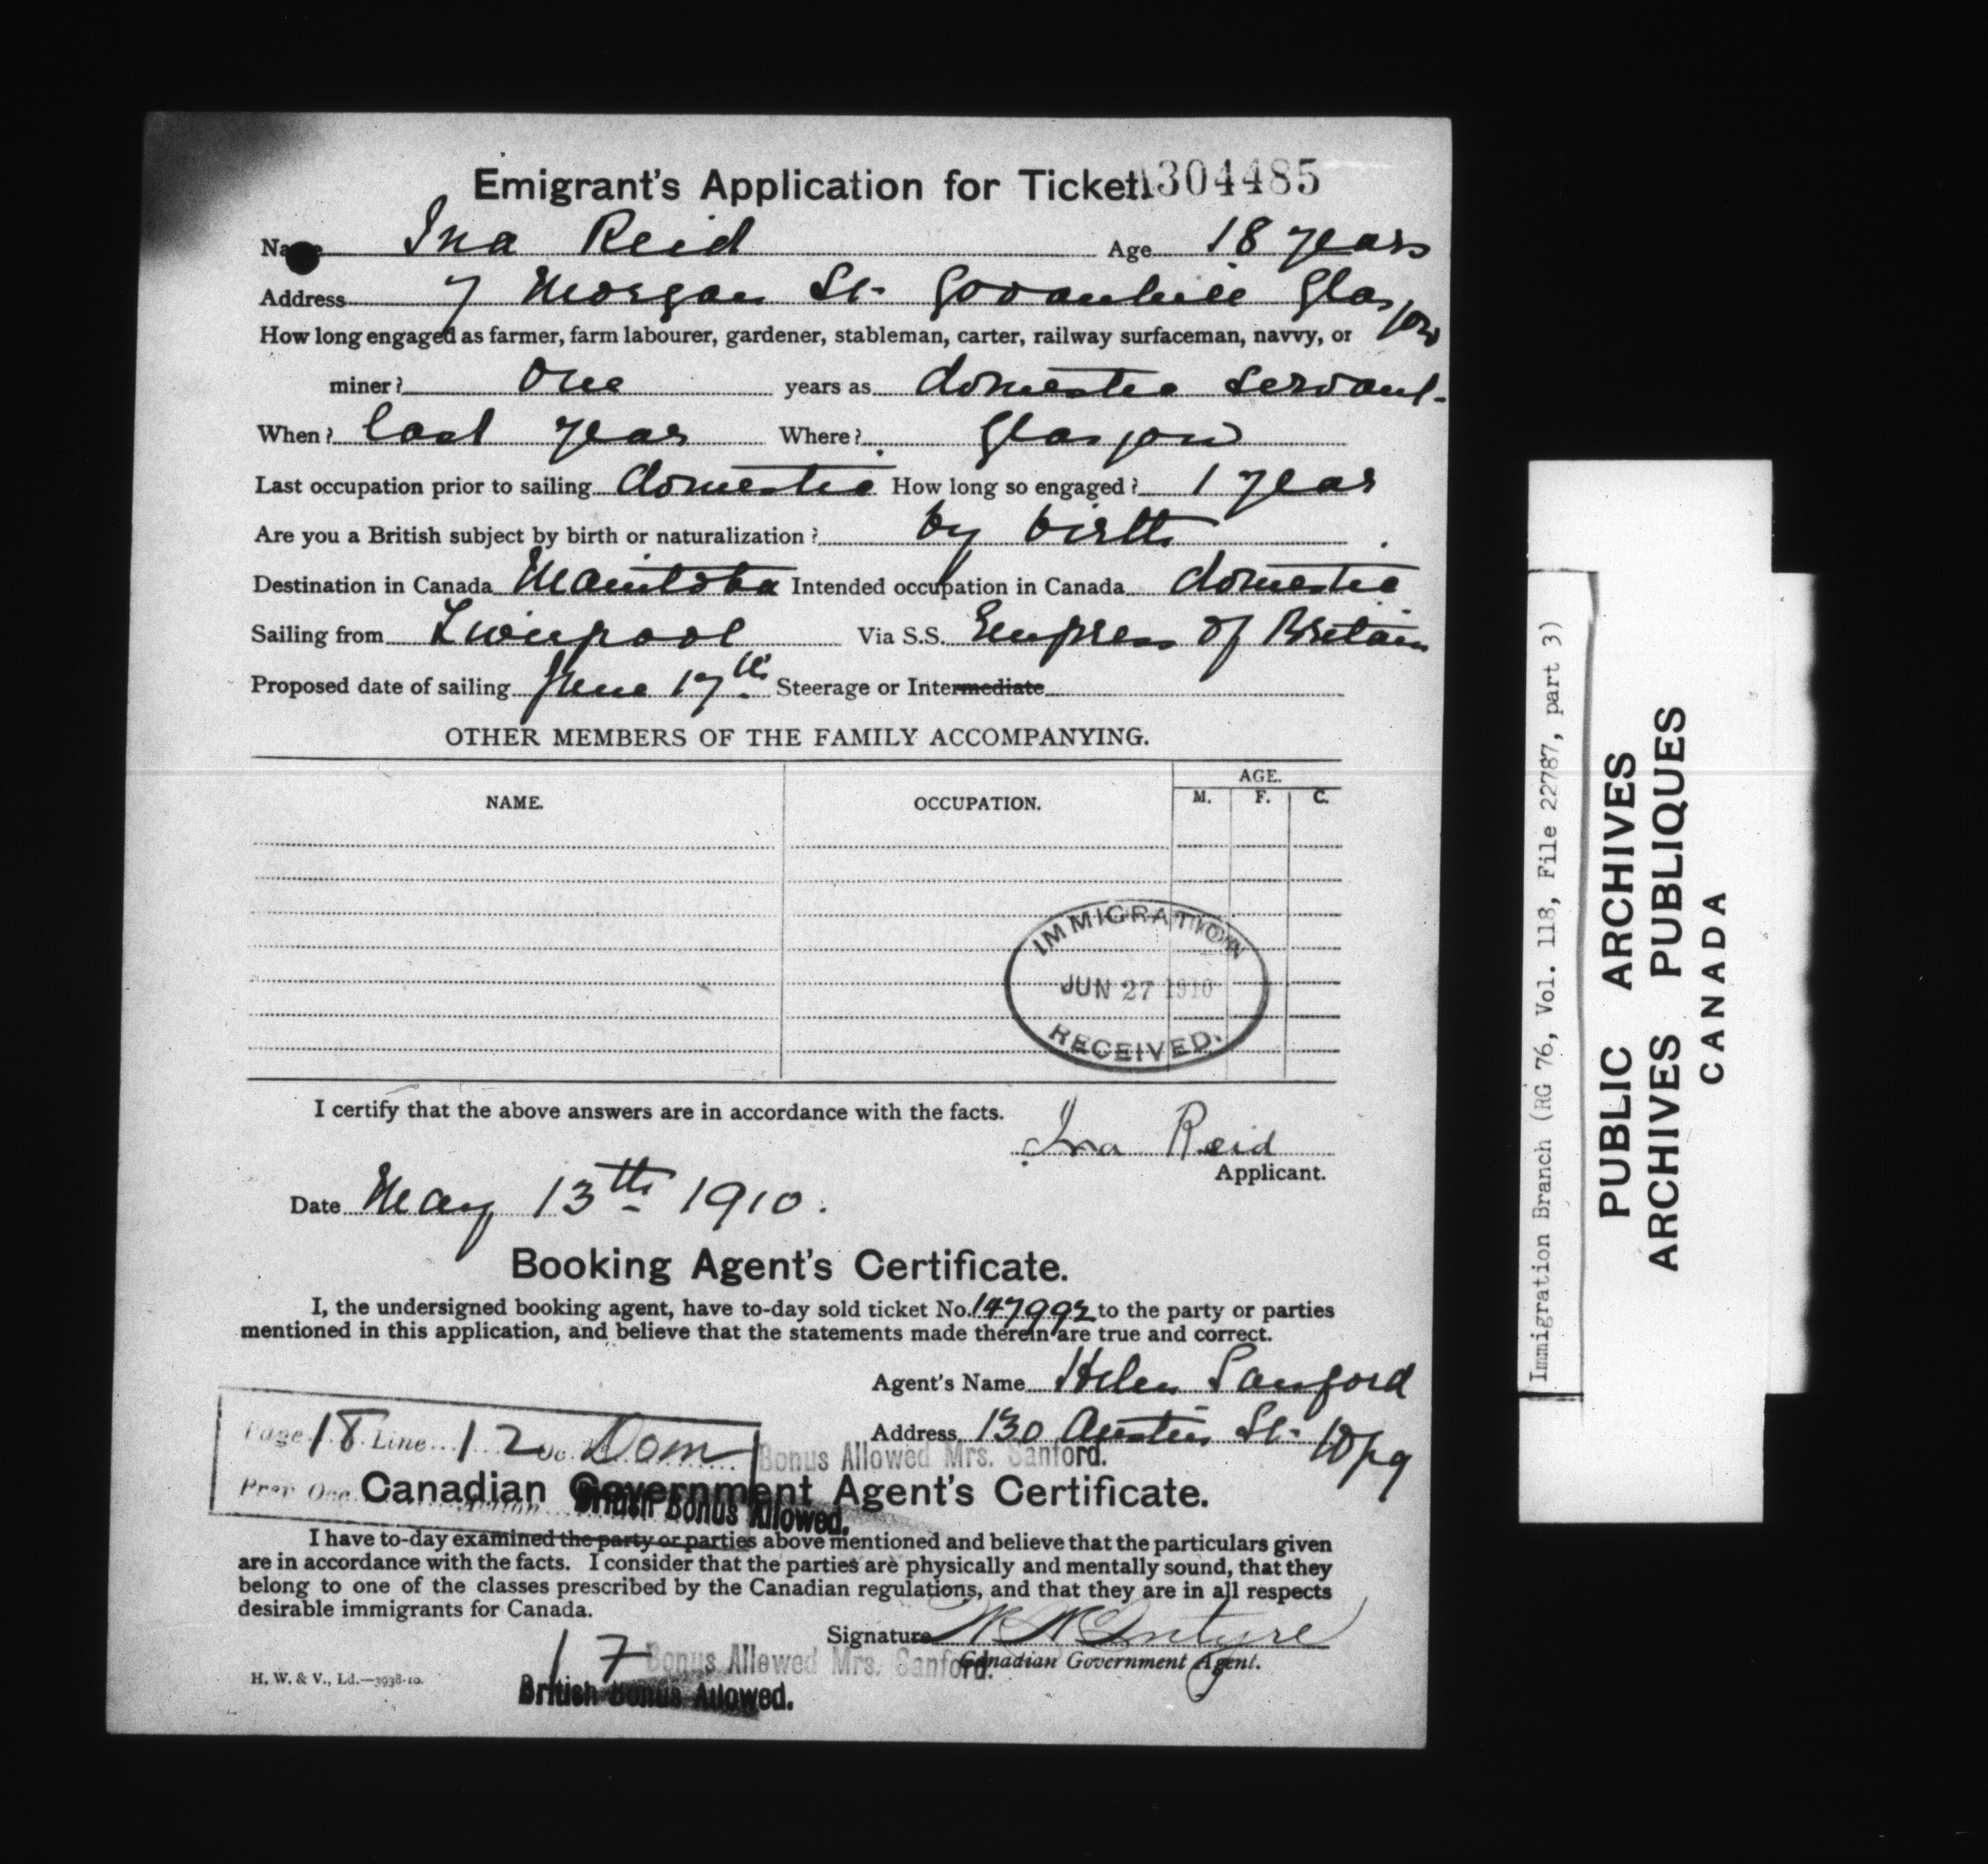 Emigrant's Application for Ticket. A304485
Name Ina Reid Age 18 years
Address 7 Morgan St. Govanhill Glasgow
How long engaged as farmer, farm labourer, gardener, stableman, carter, railway surfaceman, navvy, or
miner? One years as domestic servant.
When? last year Where? Glasgow
Last occupation prior to sailing domestic How long so engaged? 1 year
Are you a British subject by birth or naturalization? by birth
Destination in Canada Manitoba Intended occupation in Canada domestic
Sailing from Liverpool Via S.S. Empress of Britain
Proposed date of sailing June 17th Steerage or Intermediate
OTHER MEMBERS OF THE FAMILY ACCOMPANYING.
NAME. OCCUPATION. AGE.
M. F. C.
IMMIGRATION
JUN 27 1910
RECEIVED.
I certify that the above answers are in accordance with the facts.
Ina Reid
Applicant.
Date May 13th 1910.
Booking Agent's Certificate.
I, the undersigned booking agent, have to-day sold ticket No. 147992 to the party or parties
mentioned in this application, and believe that the statements made therein are true and correct.
Agent's Name Helen Sanford
Address 130 Austin St. Wpg
Page 18 Line 12 Oc. Dom
Bonus Allowed Mrs. Sanford.
Prev Occ
Canadian Government Agent's Certificate.
British Bonus Allowed.
I have to-day examined the party or parties above mentioned and believe that the particulars given
are in accordance with the facts. I consider that the parties are physically and mentally sound, that they
belong to one of the classes prescribed by the Canadian regulations, and that they are in all respects
desirable immigrants for Canada.
Signature W McIntyre
Canadian Government Agent.
17
Bonus Allowed Mrs. Sanford.
British Bonus Allowed.
H. W. & V., Ld.—3938-10.
Immigration Branch (RG 76, Vol. 118, File 22787, part 3)
PUBLIC ARCHIVES
ARCHIVES PUBLIQUES
CANADA